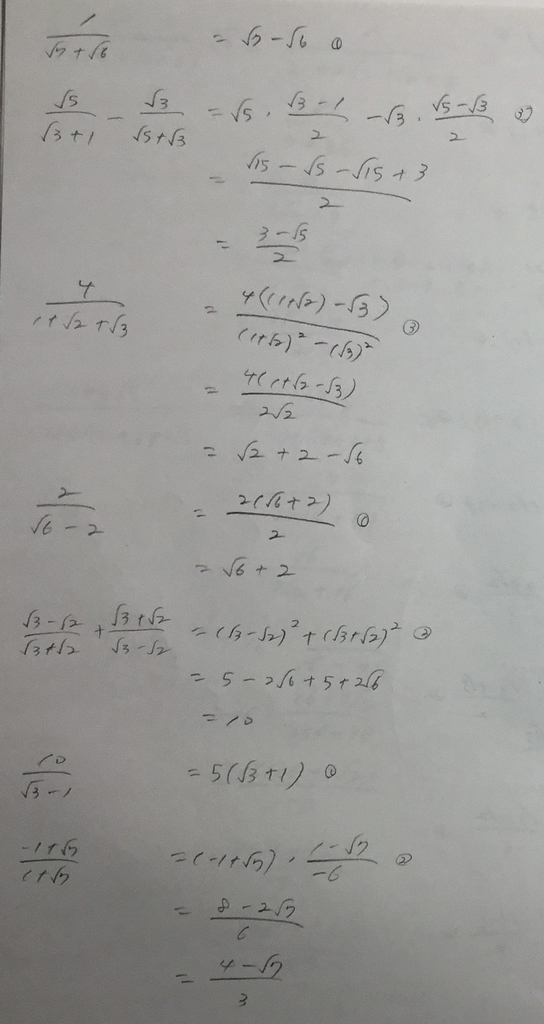 1/(√7+√6) = √7-√6 ①
√5/(√3+1) - √3/(√5+√3) = √5 · (√3-1)/2 - √3 · (√5-√3)/2 ②
= (√15-√5-√15+3)/2
= (3-√5)/2
4/(1+√2+√3) = 4((1+√2)-√3)/((1+√2)²-(√3)²) ③
= 4(1+√2-√3)/(2√2)
= √2+2-√6
2/(√6-2) = 2(√6+2)/2 ①
= √6+2
(√3-√2)/(√3+√2) + (√3+√2)/(√3-√2) = (√3-√2)²+(√3+√2)² ②
= 5-2√6+5+2√6
= 10
10/(√3-1) = 5(√3+1) ①
(-1+√7)/(1+√7) = (-1+√7) · (1-√7)/(-6) ②
= (8-2√7)/6
= (4-√7)/3